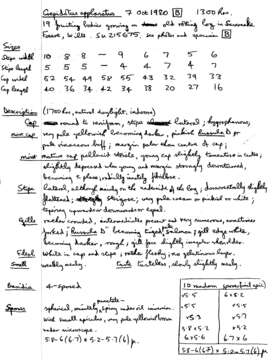 Crepidotus applanatus 7 Oct 1980 B 1300 hrs.
19 fruiting bodies growing on old rotting log in Savernake
Forest, Wilts. SU 215675. see photos and specimen B
Sizes
Stipe width 10 8 8 - 9 6 7 5 6
Stipe length 5 5 5 - 4 4 7 4 7
Cap width 52 54 49 58 55 43 32 39 33
Cap length 40 36 34 42 34 38 20 27 16
Description (1700 hrs, natural daylight, indoors)
Cap round to reniform, stipe lateral, hygrophanous,
very pale yellowish becoming darker, pinkish Russula D or
pale vinaceous buff; margin paler than centre of cap;
mature cap pallid, young cap slightly tomentose in centre,
slightly depressed when young and mature, strongly downturned,
becoming plane, radially minutely fibrillose.
Stipe lateral, although mainly on the underside of the log, dorsoventrally slightly
flattened, strigose, very pale cream or pinkish or white;
tapering upwards or downwards or equal.
Gills rather crowded, intermediates present and very numerous, sometimes
forked, Russula D becoming light salmon; gill edge white,
becoming darker, rough, gill face slightly irregular shoulder.
Flesh White in cap and stipe; rather fleshy, no gelatinous layer.
Smell mealy earthy. Taste tasteless, slowly slightly mealy.
Basidia 4-spored
Spores spherical, minutely spiny under oil immersion
with small apiculus, very pale yellow brown
under microscope.
5.8-6(6.7) x 5.2-5.7(6) µ.
10 random spores (excl. apic)
x 5.5 6 x 5.2
x 5.5 x 5.5
x 5.3 x 5.7
5.8 x 5.2 x 5.2
6 x 5.6 6.7 x 6
5.8-6(6.7) x 5.2-5.7(6) µ.